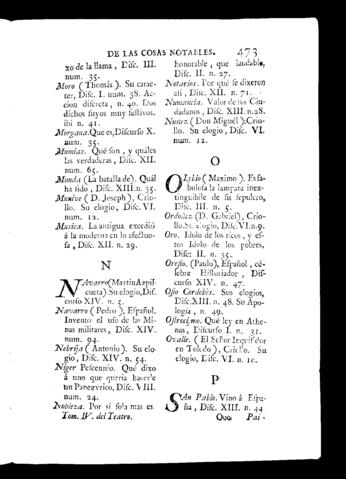 DE LAS COSAS NOTABLES. 473
xo de la llama, Disc. III.
num. 35.
Moro (Thomas). Su carac-
ter, Disc. I. num. 38. Ac-
cion discreta, n. 40. Dos
dichos suyos muy festivos.
ibi n. 41.
Morgana. Que es, Discurso X.
num. 35.
Mumias. Qué son, y quáles
las verdaderas, Disc. XII.
num. 65.
Munda (La batalla de). Quál
ha sido, Disc. XIII. n. 35.
Munive (D. Joseph), Crio-
llo. Su elogio, Disc. VI.
num. 12.
Musica. La antigua excedió
á la moderna en lo afectuo-
sa, Disc. XII. n. 29.
N
NAvarro (Martin Azpil-
cueta). Su elogio, Dis-
curso XIV. n. 5.
Navarro (Pedro), Español.
Inventó el uso de las Mi-
nas militares, Disc. XIV.
num. 94.
Nebrija (Antonio). Su elo-
gio, Disc. XIV. n. 54.
Niger Pescennio. Qué dixo
á uno que queria hacerle
un Panegyrico, Disc. VIII.
num. 24.
Nobleza. Por sí sola mas es
Tom. IV. del Teatro.
honorable, que laudable,
Disc. II. n. 27.
Notarios. Por qué se dixeron
asi, Disc. XII. n. 71.
Numancia. Valor de sus Ciu-
dadanos, Disc. XIII. n. 28.
Nuñez (Don Miguel): Crio-
llo. Su elogio, Disc. VI.
num. 12.
O
OLybio (Maximo). Es fa-
bulosa la lampara inex-
tinguible de su sepulcro,
Disc. III. n. 5.
Ordoñez (D. Gabriel), Crio-
llo. Su elogio, Disc. VI. n. 9.
Oro. Idolo de los ricos, y es-
tos Idolo de los pobres,
Disc. II. n. 35.
Orosio. (Paulo), Español, cé-
lebre Historiador, Dis-
curso XIV. n. 47.
Osio Cordobés. Sus elogios,
Disc. XIII. n. 48. Su Apo-
logia, n. 49.
Ostracismo. Qué ley en Athe-
nas, Discurso I. n. 31.
Ovalle. (El Señor Inquisidor
en Toledo), Criollo. Su
elogio, Disc. VI. n. 10.
P
SAn Pablo. Vino á Espa-
ña, Disc. XIII. n. 44.
Ooo Pai-